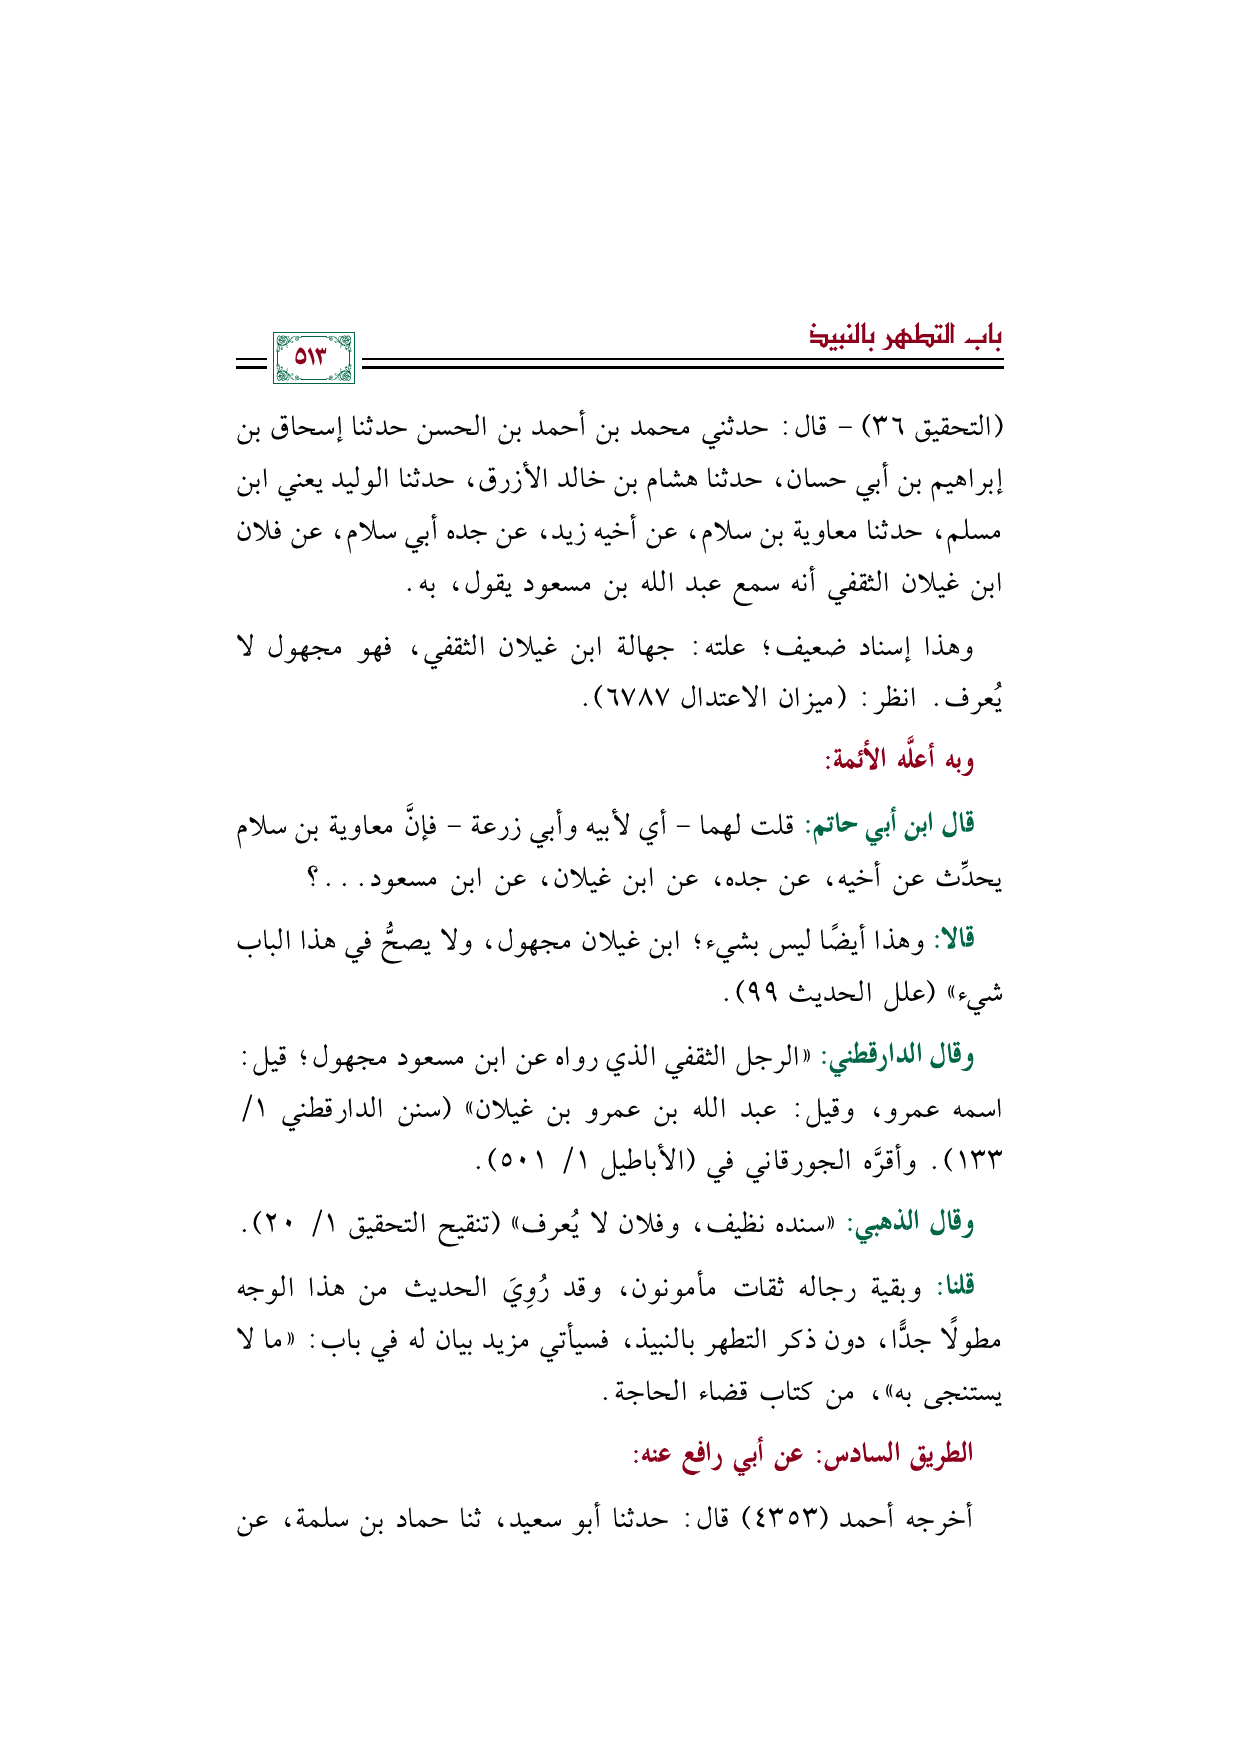 باب التطهر بالنبيذ
٥١٣
(التحقيق ٣٦) - قال: حدثني محمد بن أحمد بن الحسن حدثنا إسحاق بن
إبراهيم بن أبي حسان، حدثنا هشام بن خالد الأزرق، حدثنا الوليد يعني ابن
مسلم، حدثنا معاوية بن سلام، عن أخيه زيد، عن جده أبي سلام، عن فلان
ابن غيلان الثقفي أنه سمع عبد الله بن مسعود يقول، به.
وهذا إسناد ضعيف؛ علته: جهالة ابن غيلان الثقفي، فهو مجهول لا
يُعرف. انظر: (ميزان الاعتدال ٦٧٨٧).
وبه أعلَّه الأئمة:
قال ابن أبي حاتم: قلت لهما - أي لأبيه وأبي زرعة - فإنَّ معاوية بن سلام
يحدِّث عن أخيه، عن جده، عن ابن غيلان، عن ابن مسعود...؟
قالا: وهذا أيضًا ليس بشيء؛ ابن غيلان مجهول، ولا يصحُّ في هذا الباب
شيء» (علل الحديث ٩٩).
وقال الدارقطني: «الرجل الثقفي الذي رواه عن ابن مسعود مجهول؛ قيل:
اسمه عمرو، وقيل: عبد الله بن عمرو بن غيلان» (سنن الدارقطني ١/
١٣٣). وأقرَّه الجورقاني في (الأباطيل ١/ ٥٠١).
وقال الذهبي: «سنده نظيف، وفلان لا يُعرف» (تنقيح التحقيق ١/ ٢٠).
قلنا: وبقية رجاله ثقات مأمونون، وقد رُوِيَ الحديث من هذا الوجه
مطولًا جدًّا، دون ذكر التطهر بالنبيذ، فسيأتي مزيد بيان له في باب: «ما لا
يستنجى به»، من كتاب قضاء الحاجة.
الطريق السادس: عن أبي رافع عنه:
أخرجه أحمد (٤٣٥٣) قال: حدثنا أبو سعيد، ثنا حماد بن سلمة، عن